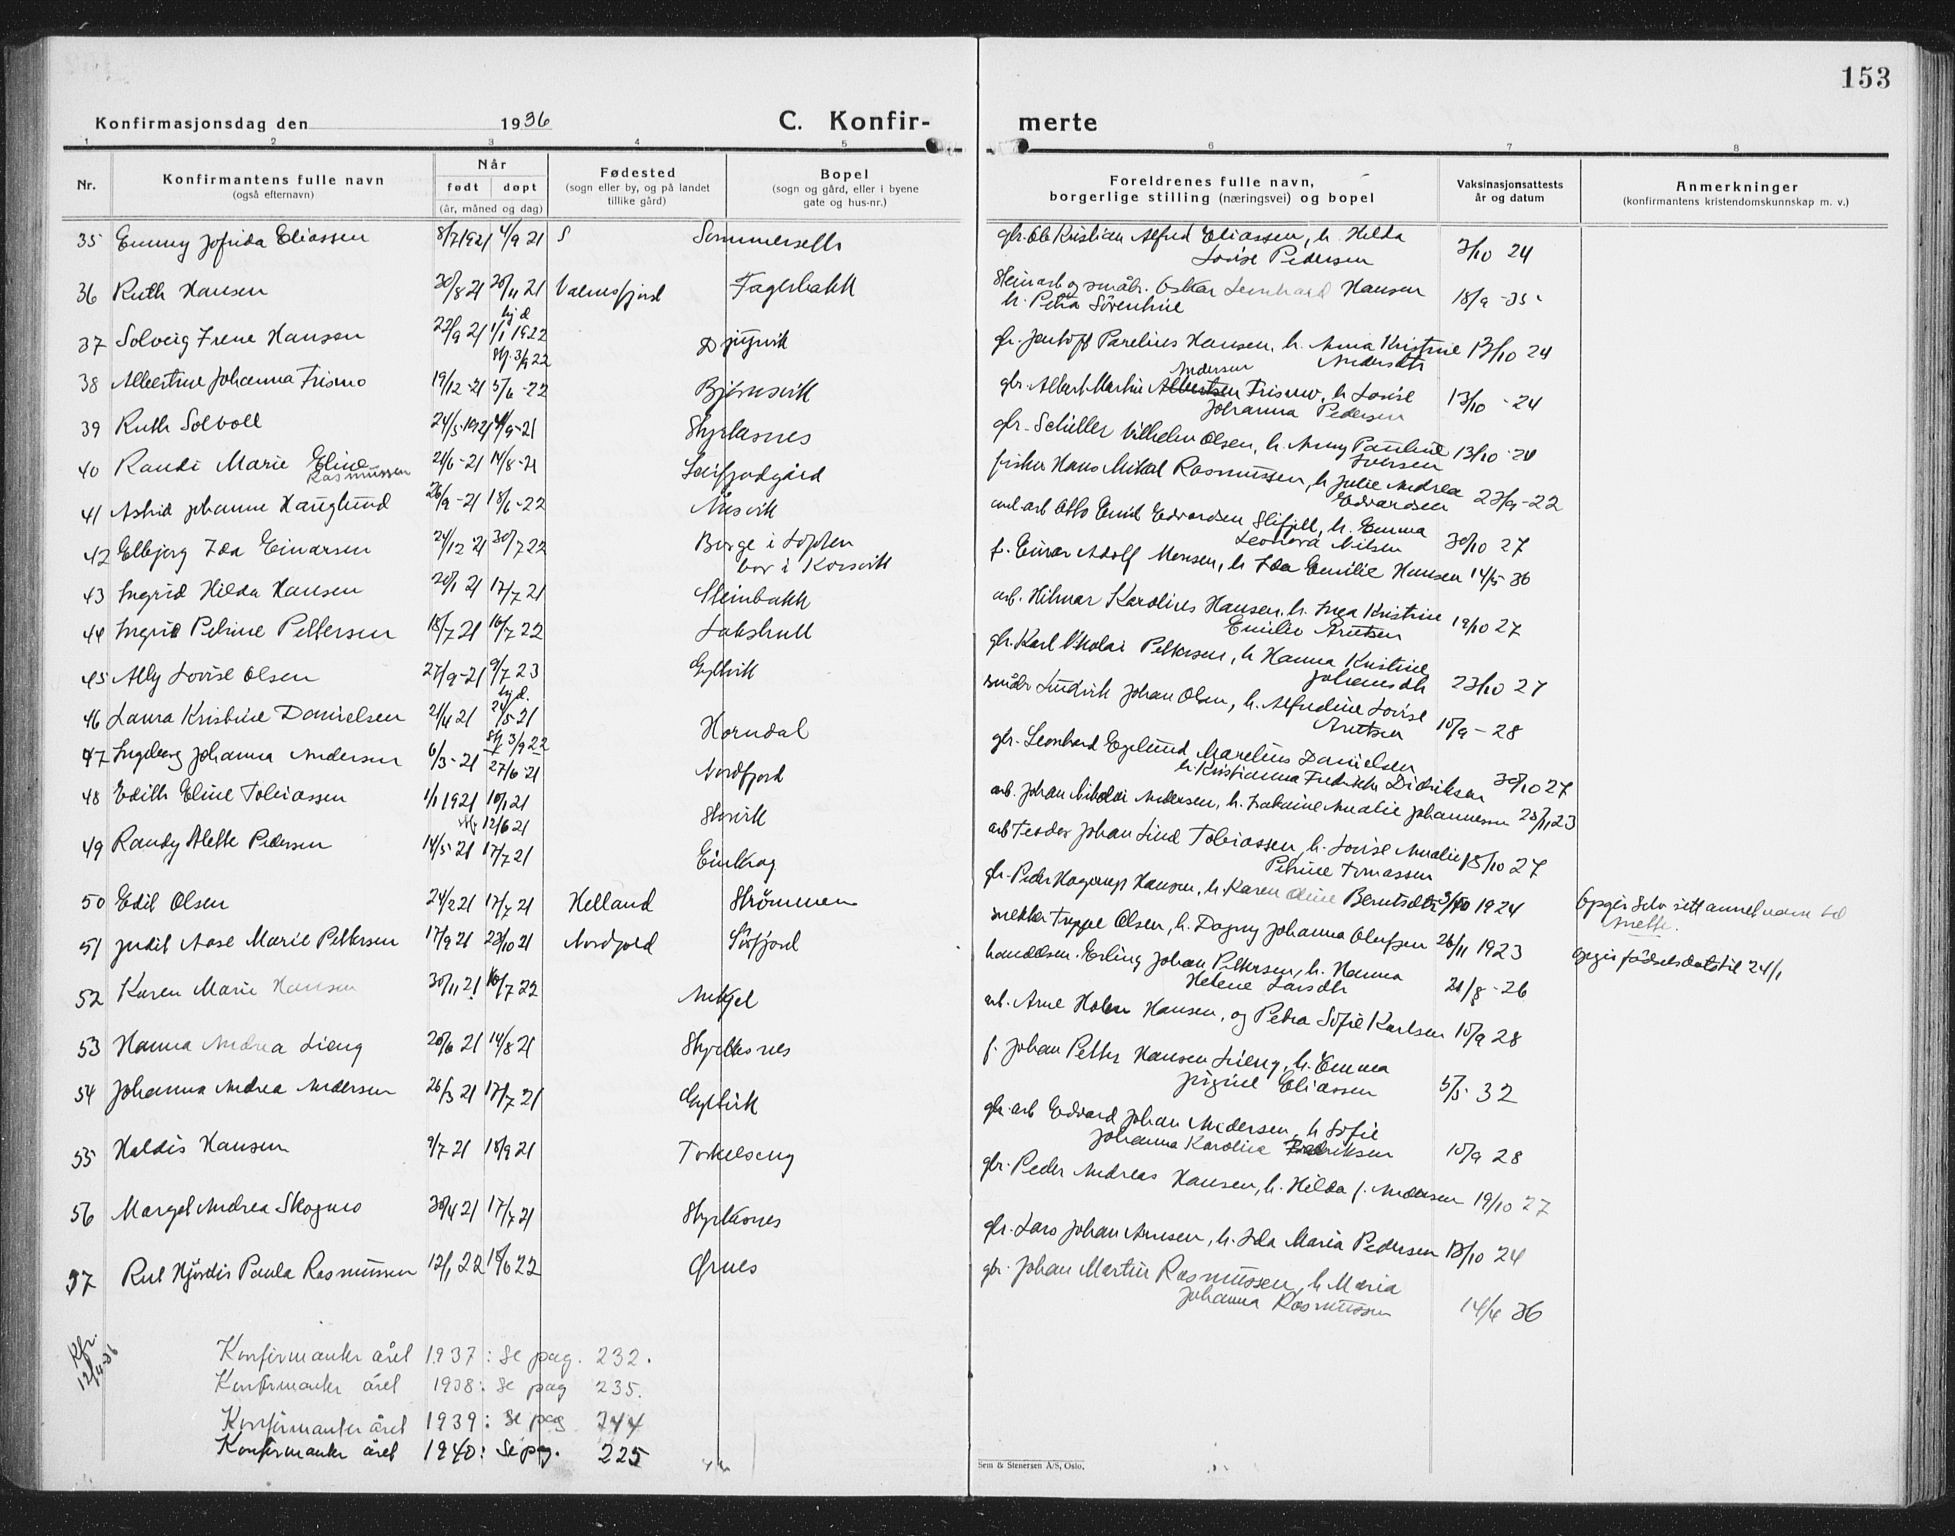 153
Konfirmasjonsdag den 1936 C. Konfir- merte
1 2 3 4 5 6 7 8
Nr.
Konfirmantens fulle navn
(også efternavn)
Når
født døpt
(år, måned og dag)
Fødested
(sogn eller by, og på landet
tillike gård)
Bopel
(sogn og gård, eller i byene
gate og hus-nr.)
Foreldrenes fulle navn,
borgerlige stilling (næringsvei) og bopel
Vaksinasjonsattests
år og datum
Anmerkninger
(konfirmantens kristendomskunnskap m. v.)
35 Emmy Jofrida Eliassen 8/7 1921 4/9 21 S Sommerseth gbr. Ole Kristian Alfred Eliassen, h. Hilda 3/10 24
Lovise Pedersen
36 Ruth Hansen 30/8 21 20/11 21 Valnesfjord Fagerbakk Steinarb og småbr. Oskar Leonhard Hansen 18/9 -35
h. Petra Sörentine
37 Solveig Irene Hansen 22/9 21 hj d. 1/1 1922 Djupvik gbr. Jentoft Parelius Hansen, h. Anna Kristine 13/10 24
st. 3/9 22 Andersdtr
38 Albertine Johanna Trismo 19/12 -21 5/6 -22 Björnsvik gbr. Albert Martin Albertsen Andersen Trismo, h Lovise 13/10 -24
Johanna Pedersen
39 Ruth Solvoll 24/5 1921 4/9 -21 Styrkesnes gbr. Schiller Vilhelm Olsen, h. Anny Pauline 13/10 -24
Iversen
40 Randi Marie Eline 21/6 -21 14/8 -21 Leifjordgård fisker Hans Mikal Rasmussen, h Julie Andrea 23/9 -22
Rasmussen Edvardsen
41 Astrid Johanne Hauglund 26/9 -21 18/6 -22 Aasvik anl arb Otto Emil Edvardsen, h. Emma 30/10 27
Leonora Nilsen
42 Elbjorg Ida Einarsen 24/12 21 30/7 22 Borge i Lofoten f. Einar Adolf Monsen, h Ida Emilie Hansen 14/5 36
bor i Korsvik
43 Ingrid Hilda Hansen 20/1 21 17/7 21 Steinbakk arb. Hilmar Karolius Hansen, h. Inga Kristine 19/10 27
Emilie Arntsen
44 Ingrid Petrine Pettersen 18/7 21 16/7 22 Lakshull gbr. Karl Nikolai Pettersen, h Hanna Kristine
Johansdtr 23/10 27
45 Ally Lovise Olsen 27/9 -21 9/7 23 Gyltvik småbr Ludvik Johan Olsen, h. Alfredine Lovise
Arntsen 10/9 - 28
46 Laura Kristine Danielsen 21/4 21 hj d. 24/5 21 Horndal gbr. Leonhard Eglund Marelius Danielsen
st 3/9 22 h. Kristianna Fredrikke Didriksen 30/10 27
47 Ingeborg Johanna Andersen 6/3 -21 27/6 -21 Nordfjord arb. Johan Nikolai Andersen, h. Amalie Johannesen 23/11 23
48 Edith Eline Tobiassen 1/1 1921 10/1 21 Storvik arb Teodor Johan Lind Tobiassen, h. Lovise Amalie 18/10 27
st. 12/6 21 Petrine Tomassen
49 Randy Alette Pedersen 14/5 21 17/7 21 Einkog gbr. Peder Hagerup Hansen, h. Karen Oline Berntsdtr 3/10 1924
50 Edit Olsen 24/2 21 17/7 21 Helland Strömmen snekker Trygve Olsen, h. Dagny Johanna Olufsen 26/11 1923 Opgir selv sitt annet navn til
Anette.
51 Judit Aase Marie Pettersen 17/9 21 23/10 21 Nordfjord Sörfjord handelsm. Erling Johan Pettersen, h. Hanna 21/8 - 26 opgir födselsdatotil 24/1
Helene Larsdtr
52 Karen Marie Hansen 30/11 21 16/7 22 Ankjel arb. Arne Holm Hansen, og Petra Sofie Karlsen 10/9 28
53 Hanna Andrea Lieng 20/6 21 14/8 21 Styrkesnes f. Johan Petter Hansen Lieng, h. Emma
Jörgine Eliassen 5/5 32
54 Johanna Andrea Andersen 26/3 21 17/7 21 Gyltvik gbr. arb Edvard Johan Andersen, h Sofie
Johanna Karolina Fredriksen 10/9 28
55 Haldis Hansen 9/7 21 18/9 21 Torkelseng gbr. Peder Andreas Hansen, h. Hilda f. Andersen 19/10 27
56 Margit Andrea Skogmo 30/4 21 17/7 21 Styrkesnes gbr. Lars Johan Arnesen, h. Ida Maria Pedersen 13/10 24
57 Rut Hjördis Paula Rasmussen 12/1 22 18/6 22 Ørnes gbr. Johan Martin Rasmussen, h Maria
Johanna Rasmussen 14/4 36
Kfr.
12/4-36
Konfirmanter året 1937: se pag. 232.
Konfirmanter året 1938: se pag 235.
Konfirmanter året 1939: se pag 244
Konfirmanter året 1940: se pg. 225
Sem & Stenersen A/S, Oslo.